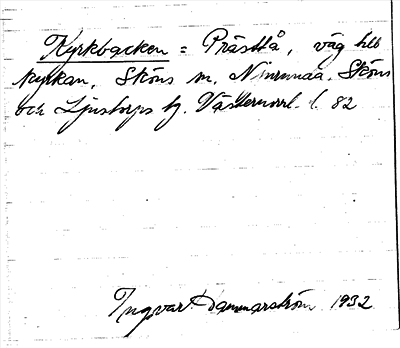 Kyrkbacken = Prästlå, väg till
kyrkan, Sköns sn. Sköns
och Ljustorps tg. Västernorrl. l. 82
Ingvar Dammarström 1932